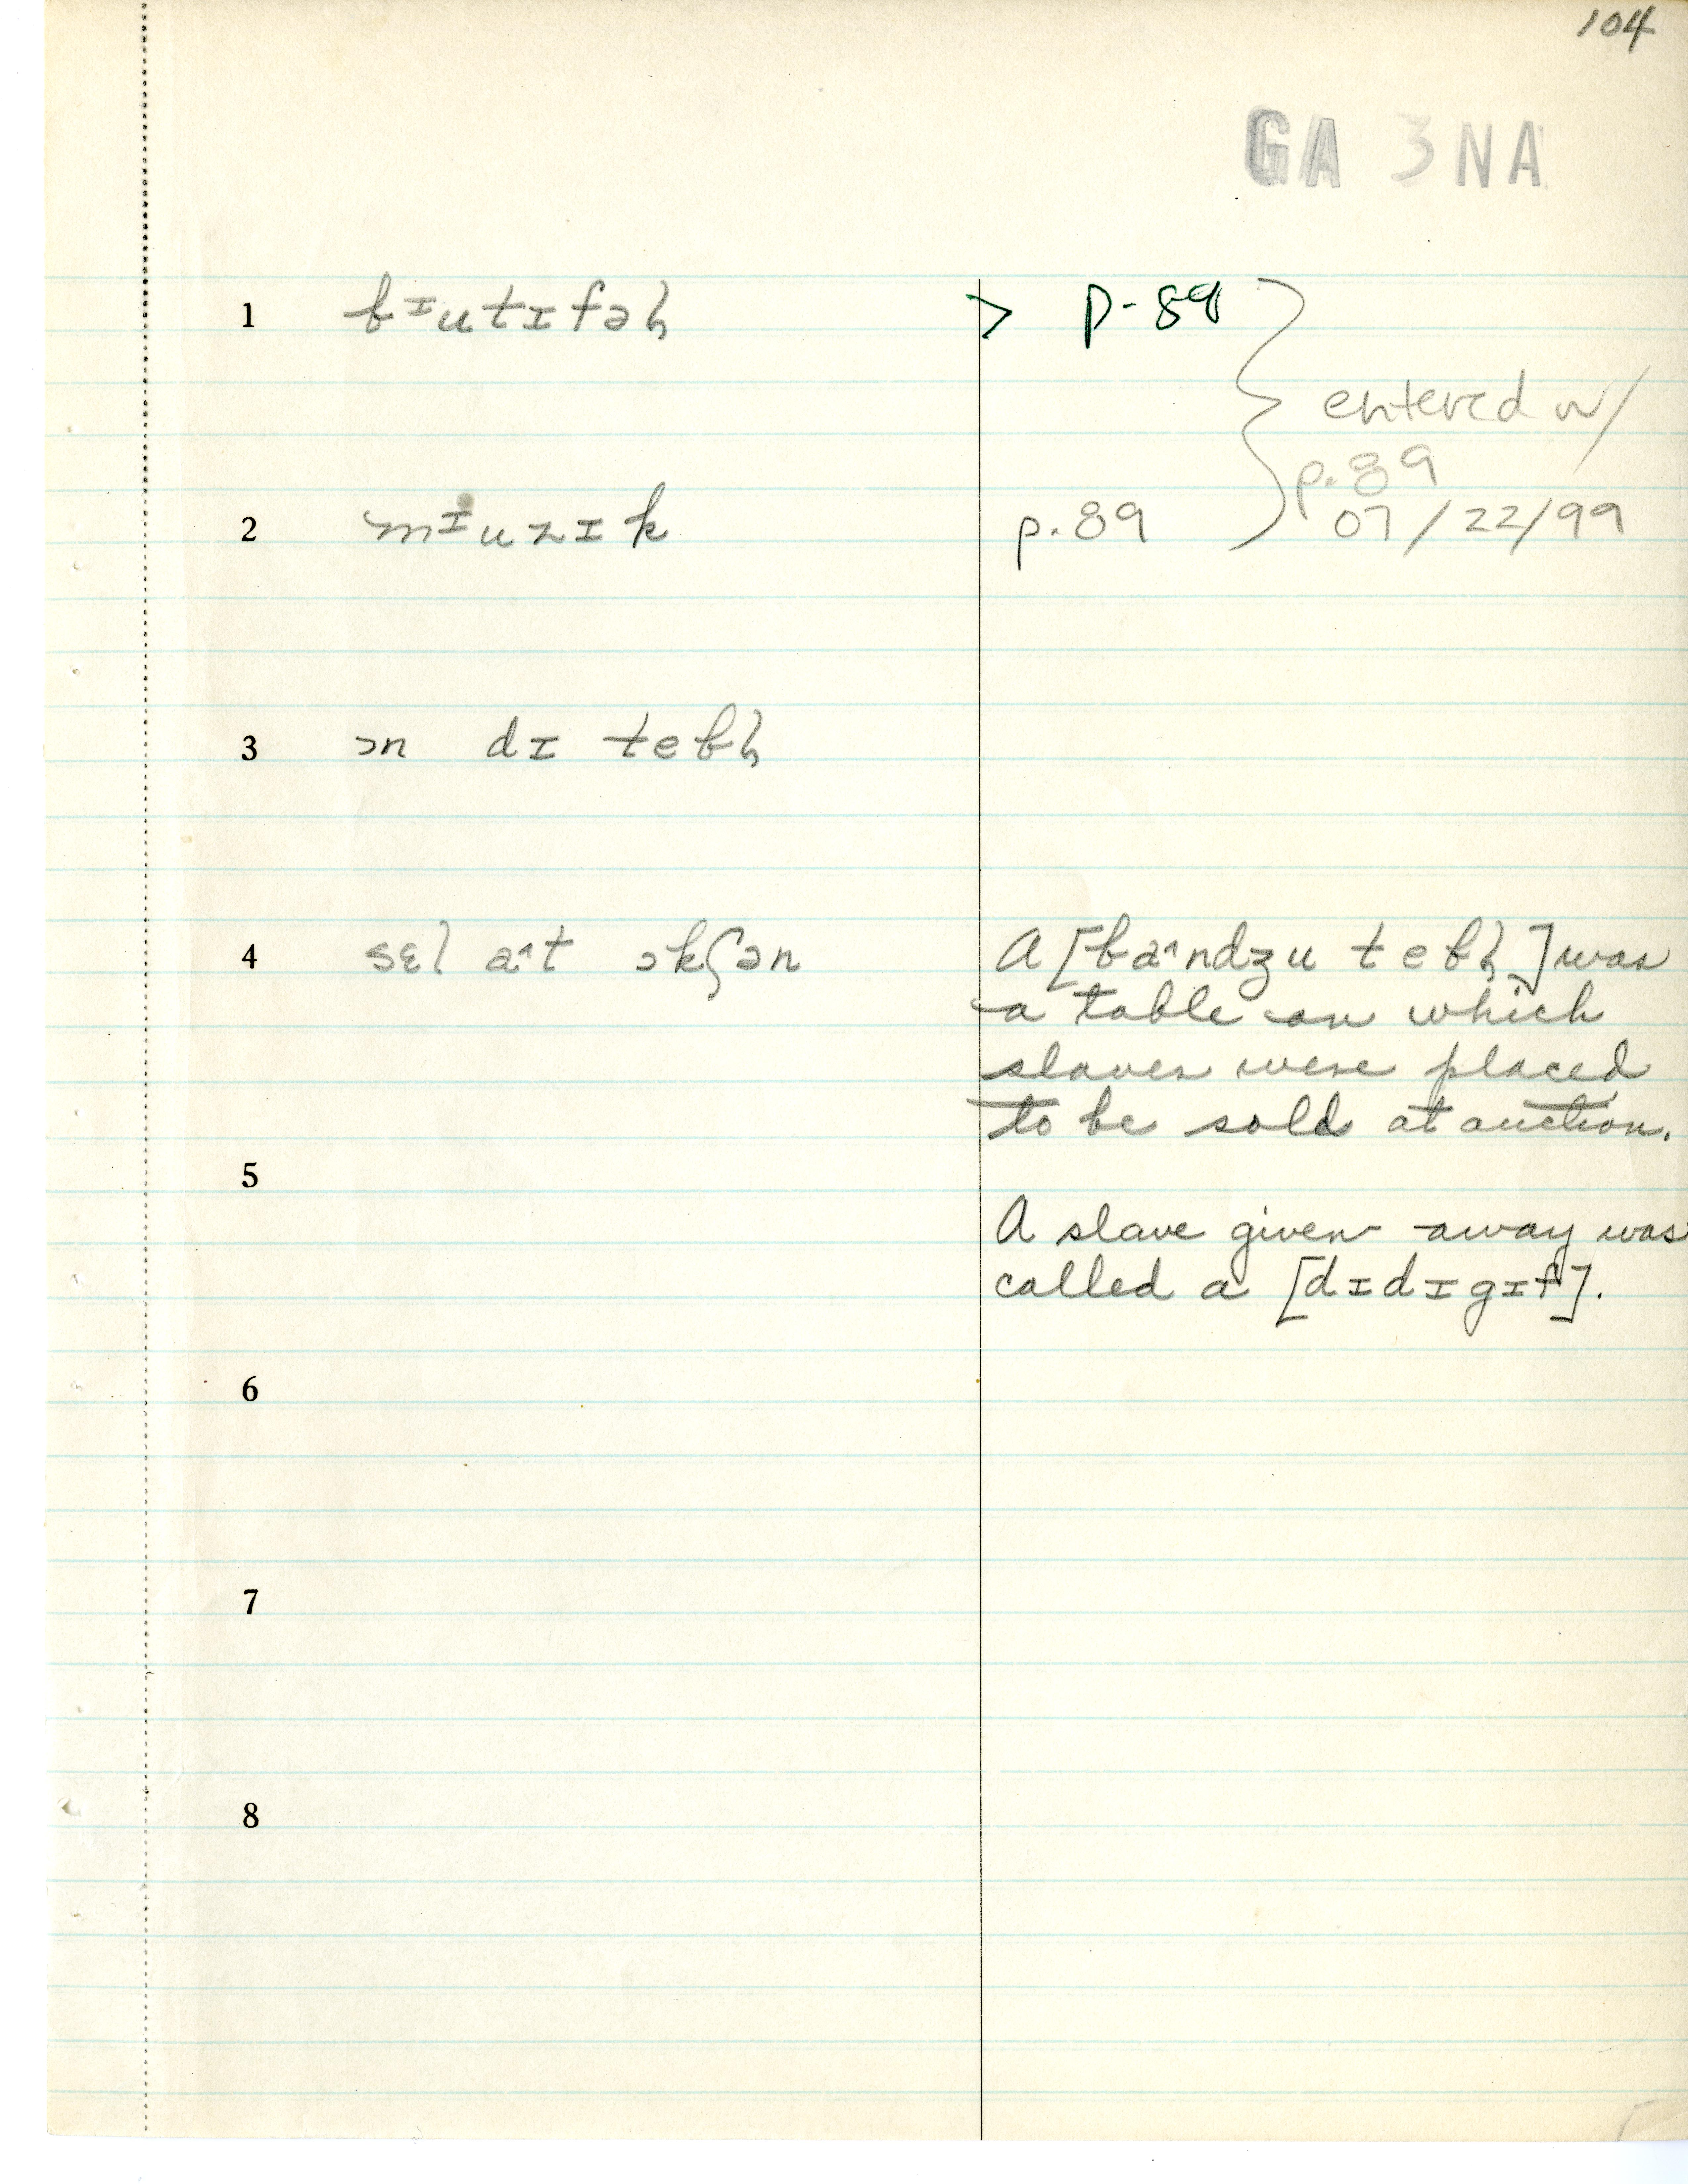 104
GA 3NA
1 bɪutɪfəl̩ > p-89
entered w/
p. 89
2 mɪuzɪk p. 89 07/22/99
3 ɔn dɪ tebl̩
4 sɛl aˆt ɔkʃən A [baˆndʒu tebl̩] was
a table on which
slaves were placed
to be sold at auction.
5
A slave given away was
called a [dɪdɪgɪf].
6
7
8